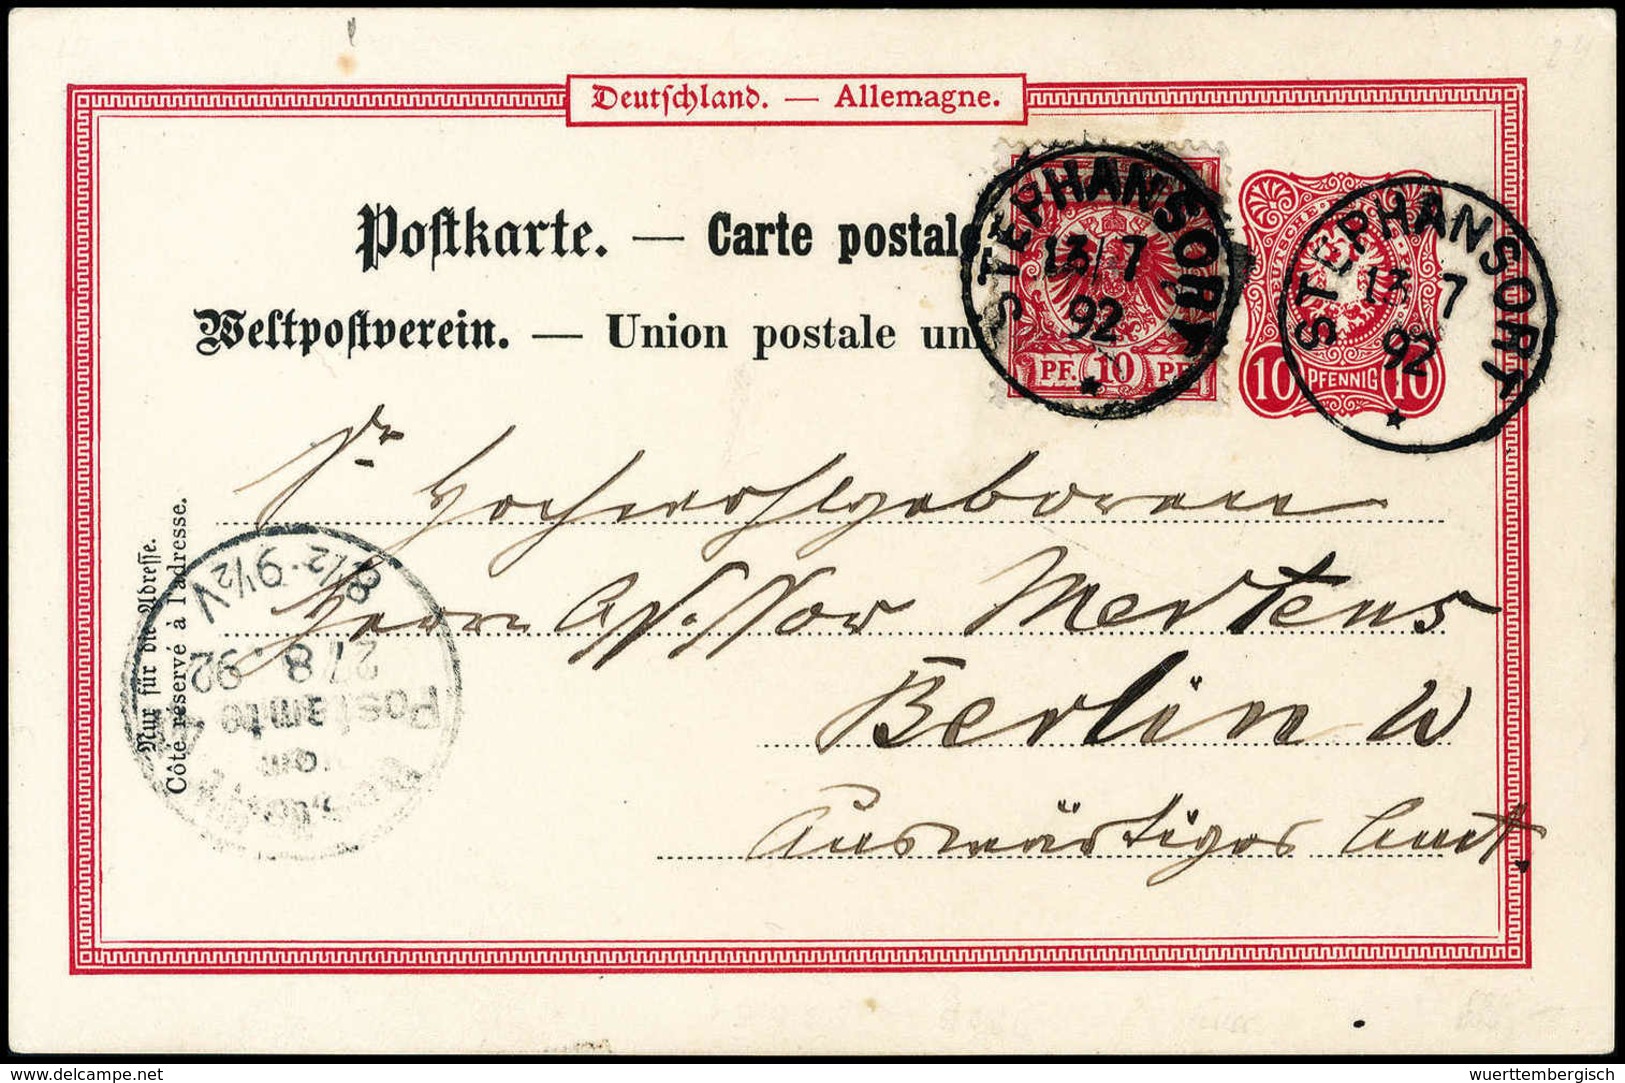 Deutschland. — Allemagne.
Postkarte. — Carte postale
Weltpostverein. — Union postale un
STEPHANSORT
13/7
92
PF. 10 PF.
STEPHANSORT
13 7
92
DEUTSCHE
10 PFENNIG 10
Sr Hochwohlgeboren
Herrn Assessor Mertens
Berlin W
Auswärtiges Amt.
Nur für die Adresse.
Côté réservé à l'adresse.
Postamte
27 8. 92
8½-9½V
wuerttembergisch
delcampe.net